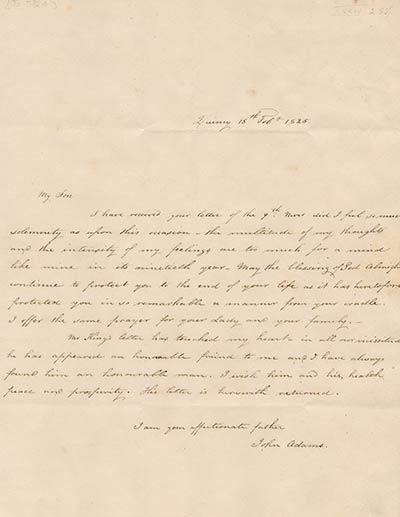 Quincy 18th Feb. 1825.
My Son
I have received your letter of the 9th. Never did I feel so much
solemnity as upon this occasion – the multitude of my thoughts
and the intensity of my feelings are too much for a mind
like mine in its ninetieth year – May the blessing of God Almighty
continue to protect you to the end of your life as it has heretofore
protected you in so remarkable a manner from your cradle.
I offer the same prayer for your Lady and your family. –
Mr Kings letter has touched my heart in all our
he has appeared an honourable friend to me and I have always
found him an honourable man. I wish him and his, health
peace and prosperity. His letter is herewith returned.
I am your affectionate father
John Adams.